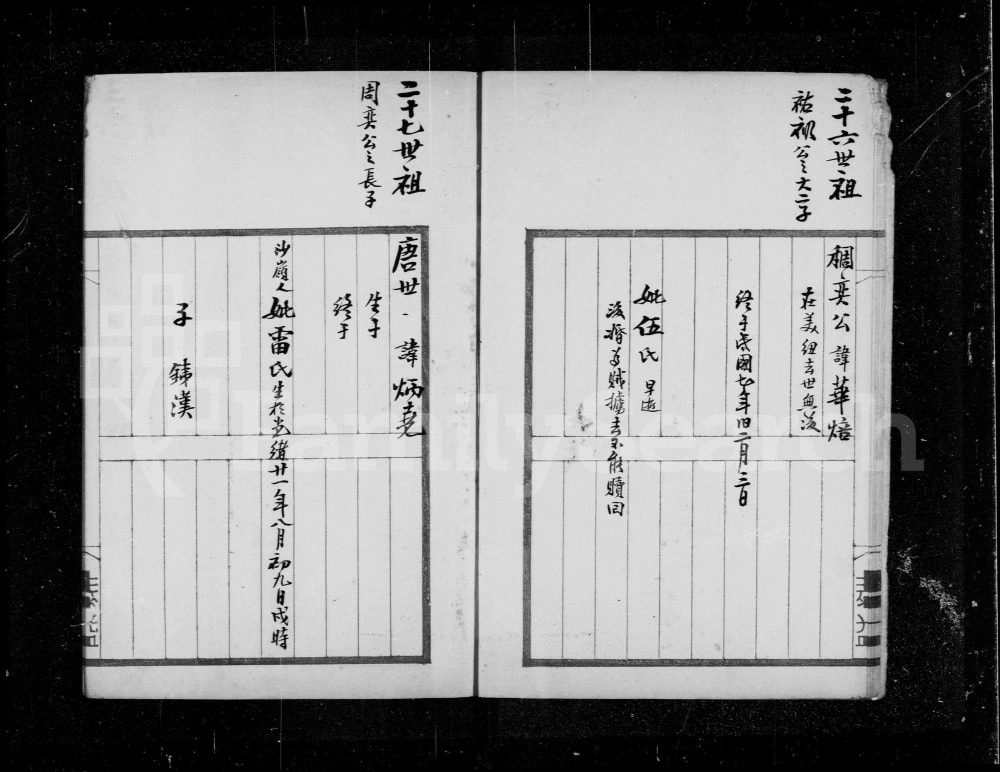 二十六世祖
祐初公之大二子
稠奕公諱華焙
在美紐去世無後
終于民國七年旧二月三日
妣伍氏早逝
後婚为賊擄去不能贖回
二十七世祖
周奕公之長子
唐世諱炳堯
生于
終于
沙嶺人妣雷氏生於光緒廿一年八月初九日戌時
子 銕漢
FamilySearch